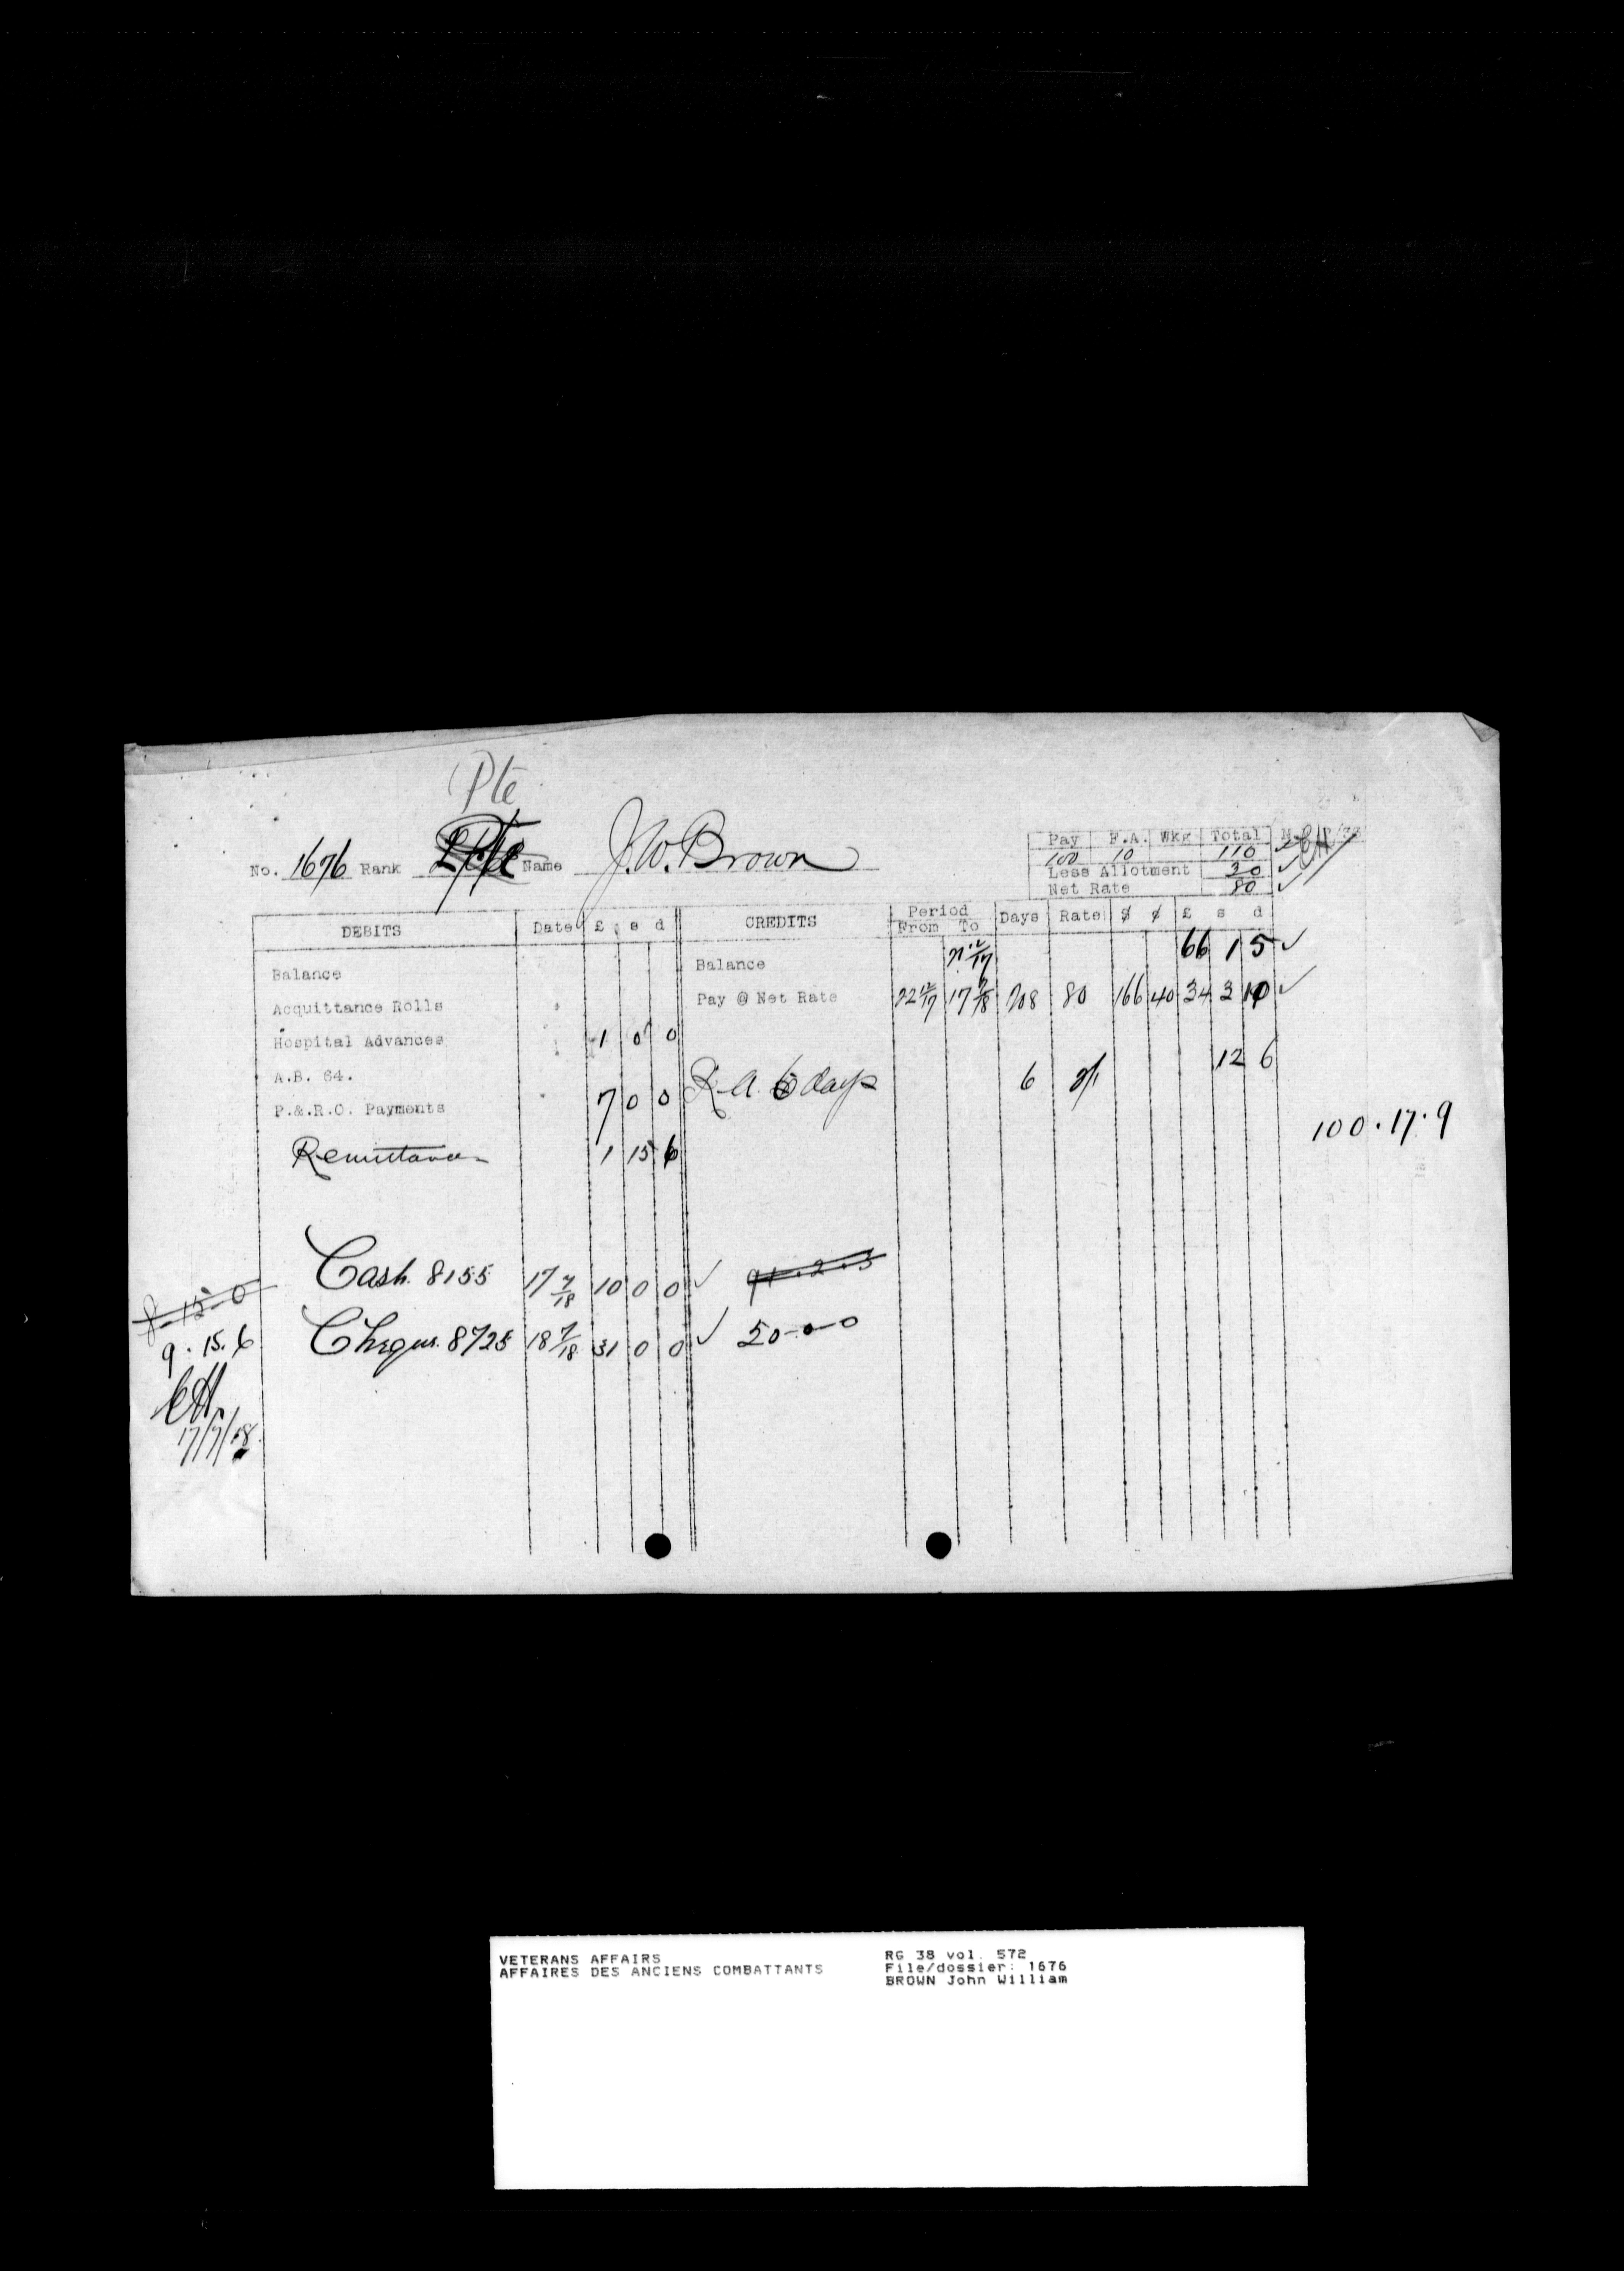 Pte
No. 1676 Rank L/Cpl Name J.W. Brown
Pay F.A. Wkg Total
100 10 110
Less Allotment 30
Net Rate 80
DEBITS Date £ s d CREDITS Period From To Days Rate $ ¢ £ s d
Balance Balance 21 12/17 66 1 5 ✓
Acquittance Rolls Pay @ Net Rate 22 12/17 17 7/18 208 80 166 40 34 3 10 ✓
Hospital Advances 1 0 0
A.B. 64. R.A. 6 days 6 2/1 12 6
P.&.R.O. Payments 7 0 0
100.17.9
Remittance 1 15 6
Cash. 8155 17 7/18 10 0 0 ✓ 91.2.3
8-15-0
Cheque. 8725 18 7/18 31 0 0 ✓ 50-0-0
9.15.6
17/7/18
VETERANS AFFAIRS RG 38 vol. 572
AFFAIRES DES ANCIENS COMBATTANTS File/dossier: 1676
BROWN John William